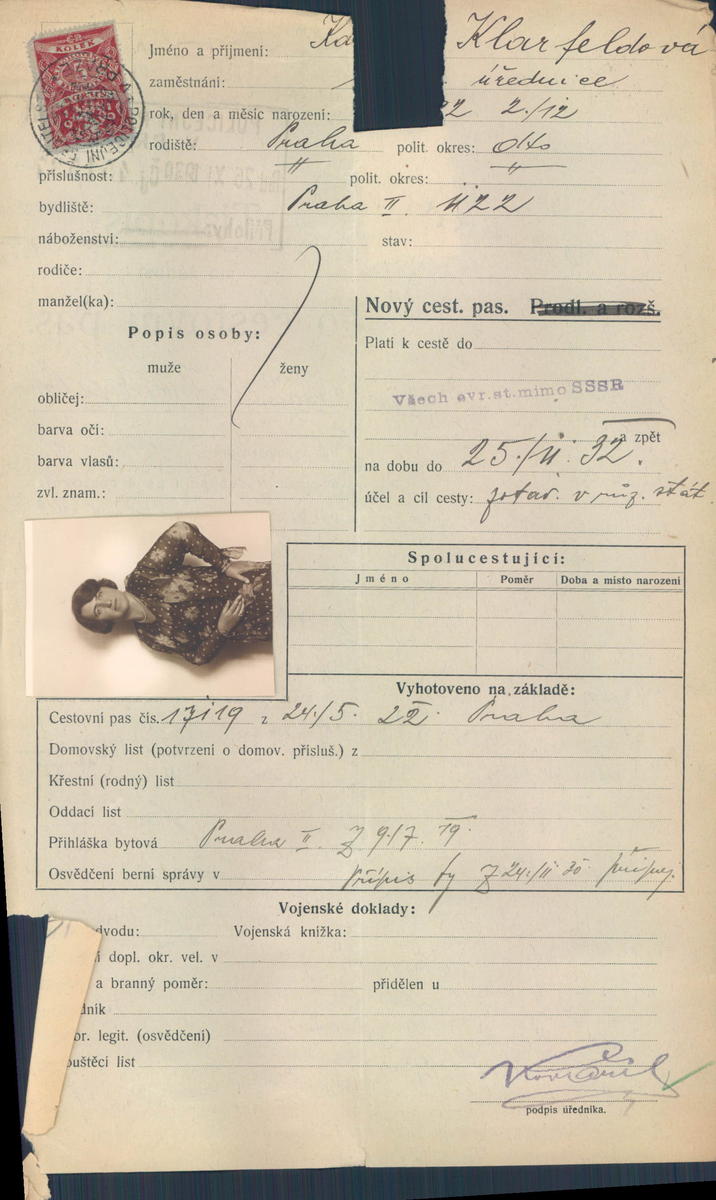 KOLEK
Jméno a příjmení: Ka Klarfeldová
zaměstnání: úřednice
rok, den a měsíc narození: 2./12
rodiště: Praha polit. okres: dtto
příslušnost: " polit. okres: "
bydliště: Praha II. 1122
náboženství: stav:
rodiče:
manžel(ka):
Nový cest. pas. Prodl. a rozš.
Popis osoby:
Platí k cestě do
muže ženy
Všech evr.st.mimo SSSR
obličej:
barva očí:
a zpět
barva vlasů:
na dobu do 25./11. 32.
zvl. znam.:
účel a cíl cesty: zotav. v růz. stát.
Spolucestující:
Jméno Poměr Doba a místo narození
Vyhotoveno na základě:
Cestovní pas čís. z 24./5. Praha
Domovský list (potvrzení o domov. přísluš.) z
Křestní (rodný) list
Oddací list
Přihláška bytová Praha II. z 9./7. 19.
Osvědčení berní správy v přípis z 24./11 30
Vojenské doklady:
dvodu: Vojenská knížka:
í dopl. okr. vel. v
a branný poměr: přidělen u
dník
or. legit. (osvědčení)
ouštěcí list
podpis úředníka.